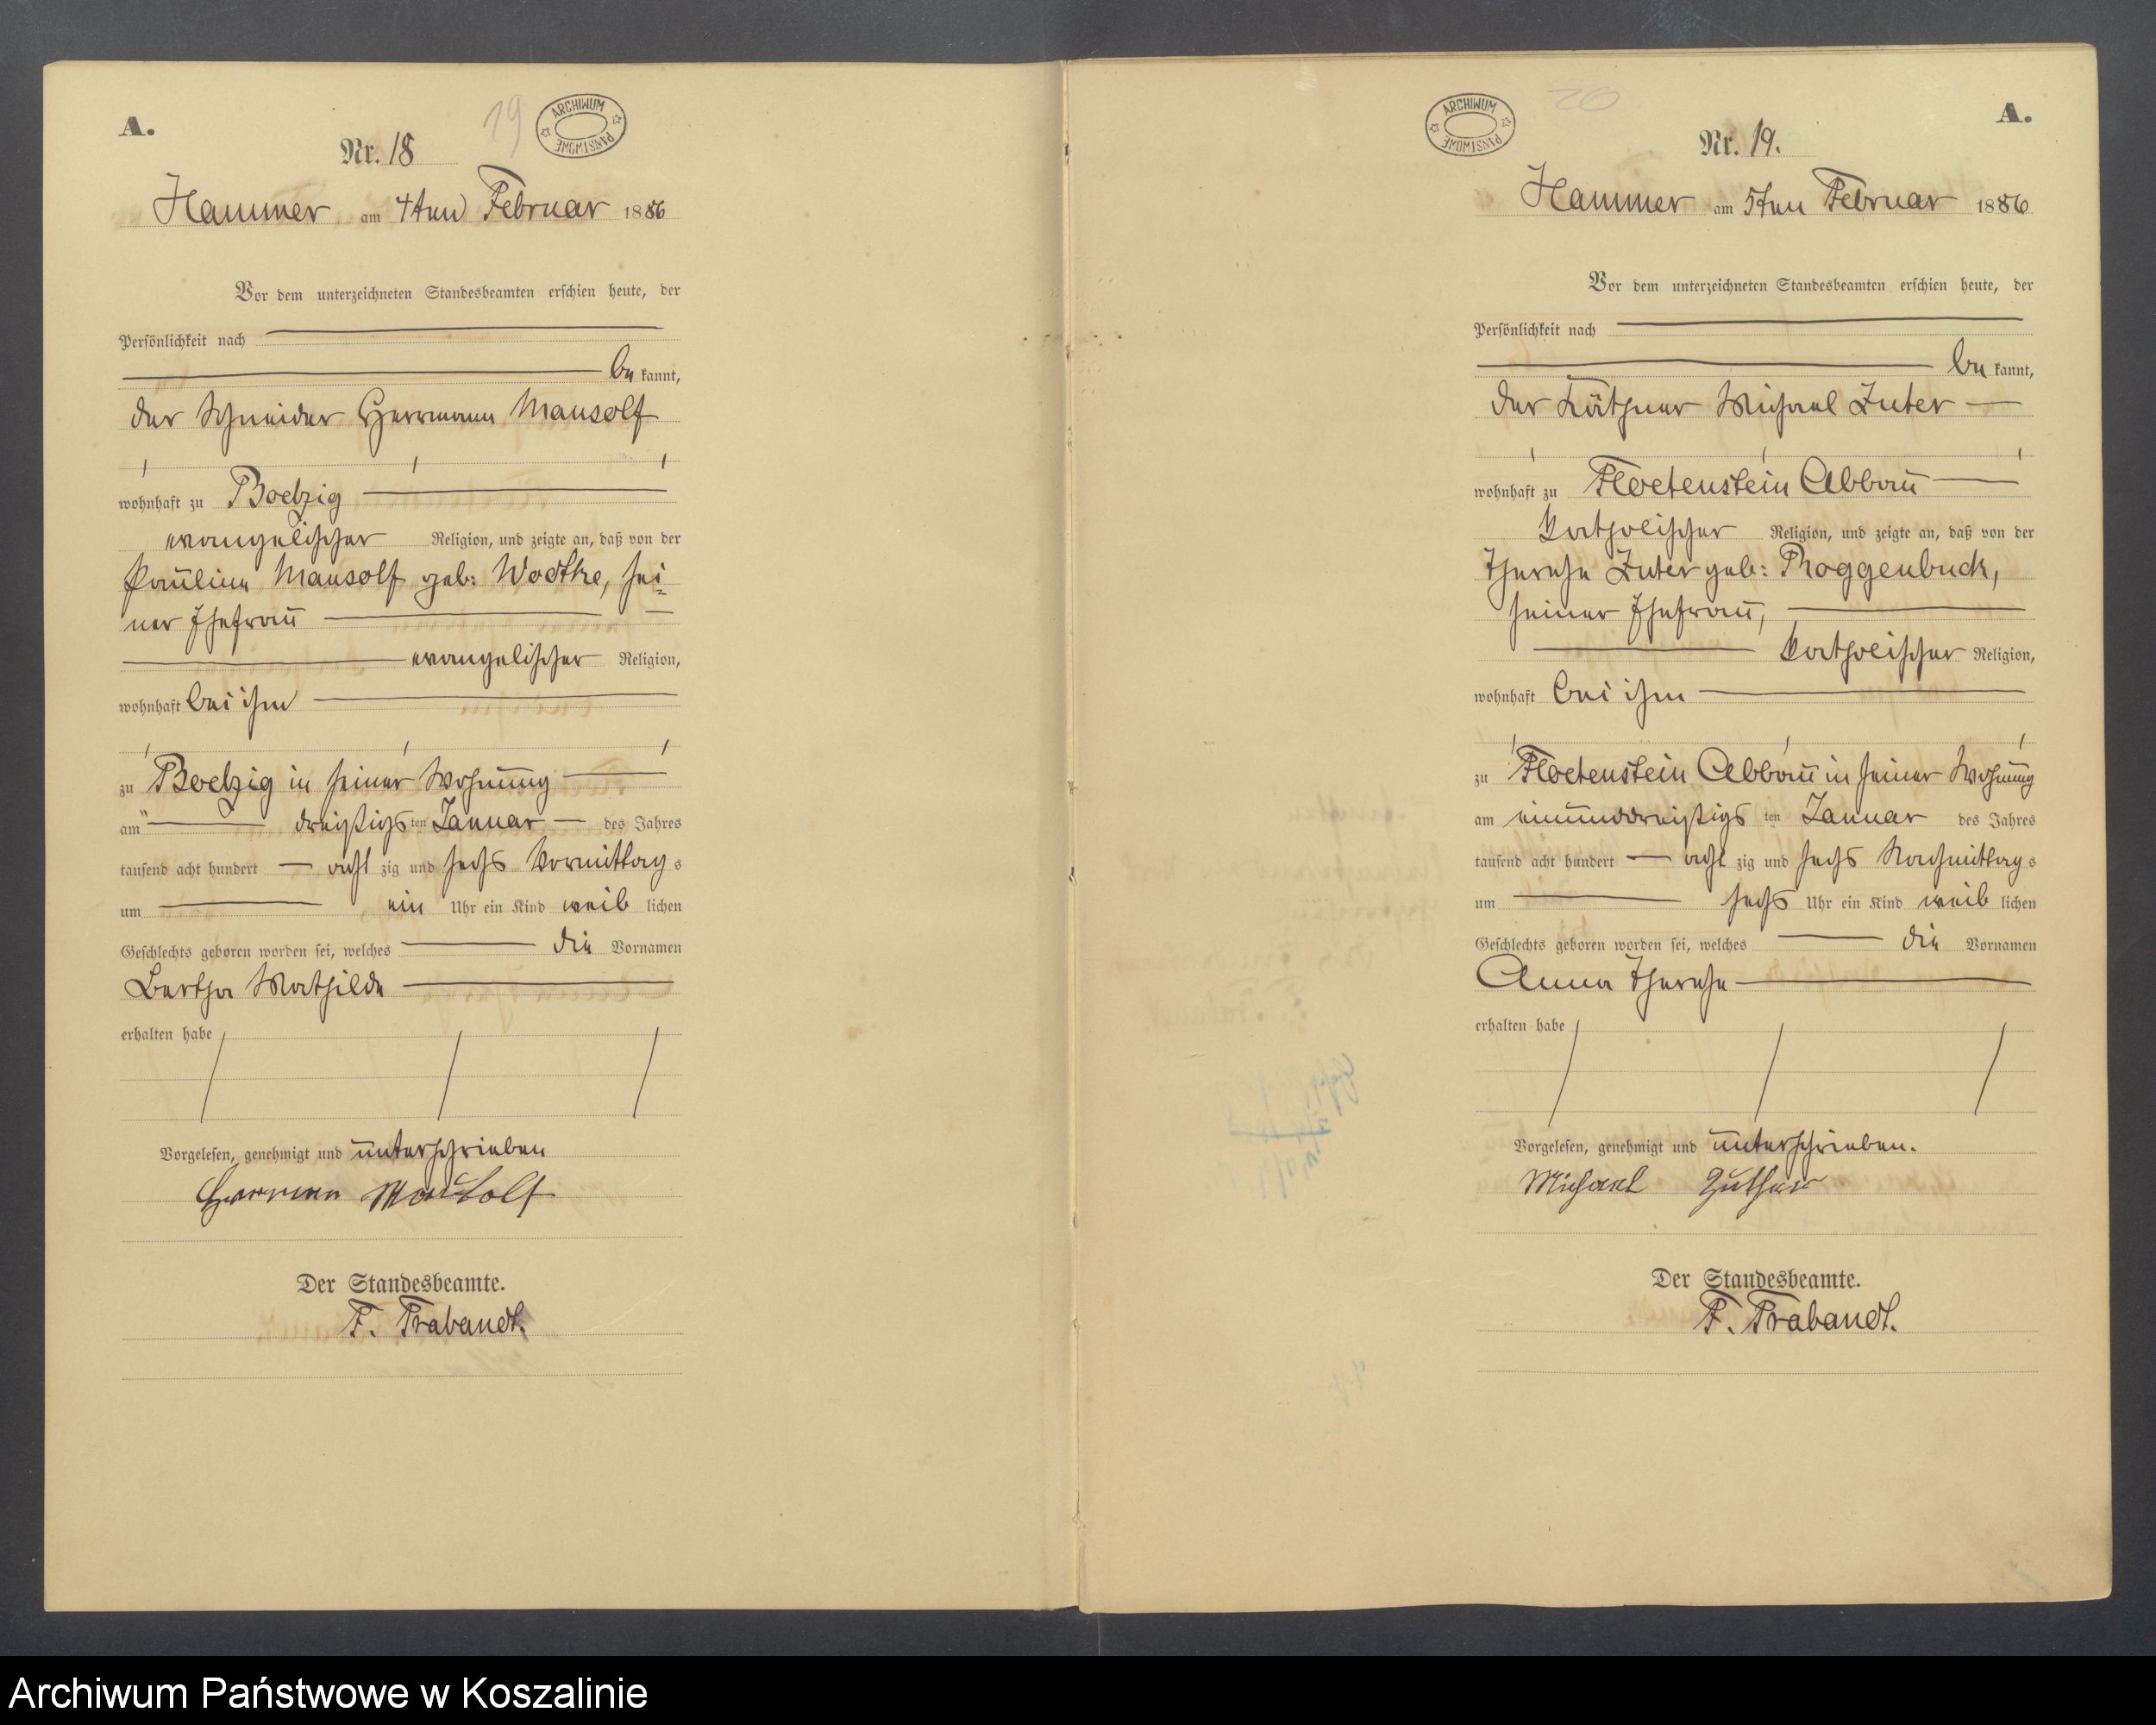 A.
19
ARCHIWUM PAŃSTWOWE
Nr. 18
Hammer am 4ten Februar 1886
Vor dem unterzeichneten Standesbeamten erschien heute, der
Persönlichkeit nach
be kannt,
der Schneider Herrmann Mansolf
wohnhaft zu Boelzig
evangelischer Religion, und zeigte an, daß von der
Pauline Mansolf geb: Wodtke, sei-
ner Ehefrau
evangelischer Religion,
wohnhaft bei ihm
zu Boelzig in seiner Wohnung
am dreißigsten Januar des Jahres
tausend acht hundert acht zig und sechs Vormittags
um ein Uhr ein Kind weib lichen
Geschlechts geboren worden sei, welches die Vornamen
Bertha Mathilde
erhalten habe
Vorgelesen, genehmigt und unterschrieben
Herman Mansolf
Der Standesbeamte.
F. Trabandt.
20
ARCHIWUM PAŃSTWOWE
A.
Nr. 19.
Hammer am 5ten Februar 1886
Vor dem unterzeichneten Standesbeamten erschien heute, der
Persönlichkeit nach
be kannt,
der Käthner Michael Zuter
wohnhaft zu Floetenstein Abbau
katholischer Religion, und zeigte an, daß von der
Therese Zuter geb: Roggenbuck,
seiner Ehefrau,
katholischer Religion,
wohnhaft bei ihm
zu Floetenstein Abbau in seiner Wohnung
am einunddreißigsten Januar des Jahres
tausend acht hundert acht zig und sechs Nachmittags
um sechs Uhr ein Kind weib lichen
Geschlechts geboren worden sei, welches die Vornamen
Anna Therese
erhalten habe
Vorgelesen, genehmigt und unterschrieben.
Michael Zuther
Der Standesbeamte.
F. Trabandt.
Archiwum Państwowe w Koszalinie